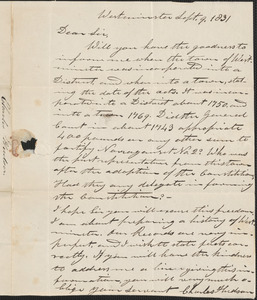 Westminster Sept. 9, 1831
Dear Sir,
Will you have the goodness to
inform me when the town of West-
minster was incorporated into a
District and when into a town, stating
the date of the acts. It was incor-
porated into a District about 1759 and
into a town 1769. Did the General
Court in about 1743 appropriate
for any other sum to
fortify Narraganset No. 2? Who was
the first representation from this town
after the adoption of the Constitution
Had they any delegate in forming
the Constitution?
I hope Sir you will excuse this freedom
I am about preparing a history of West-
minster. Our Records are very im-
perfect, and I wish to state facts cor-
rectly. If you will have the kindness
to address me a line giving this in-
formation, you will very much o-
blige your servant Charles Hudson